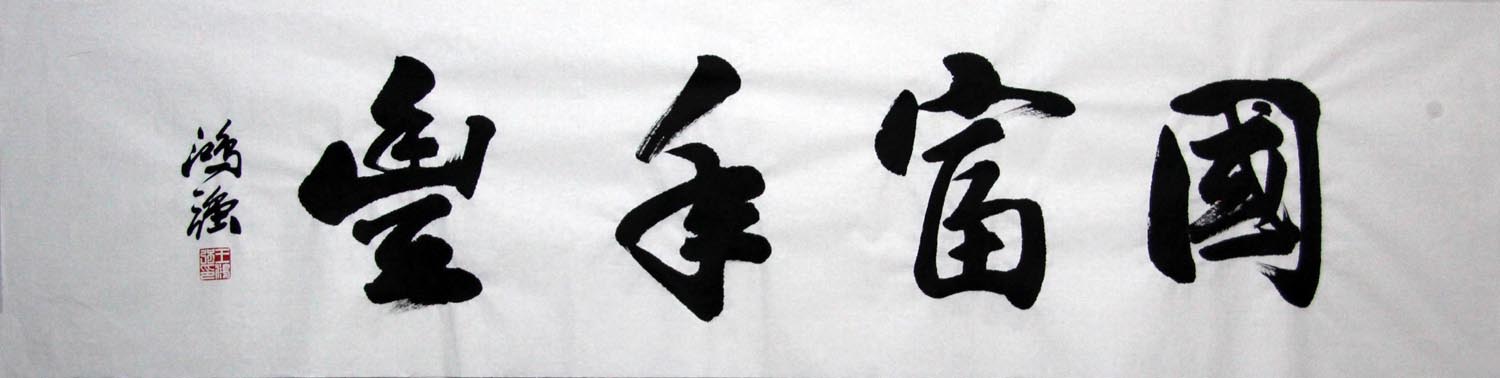 國富年豐
鴻疆